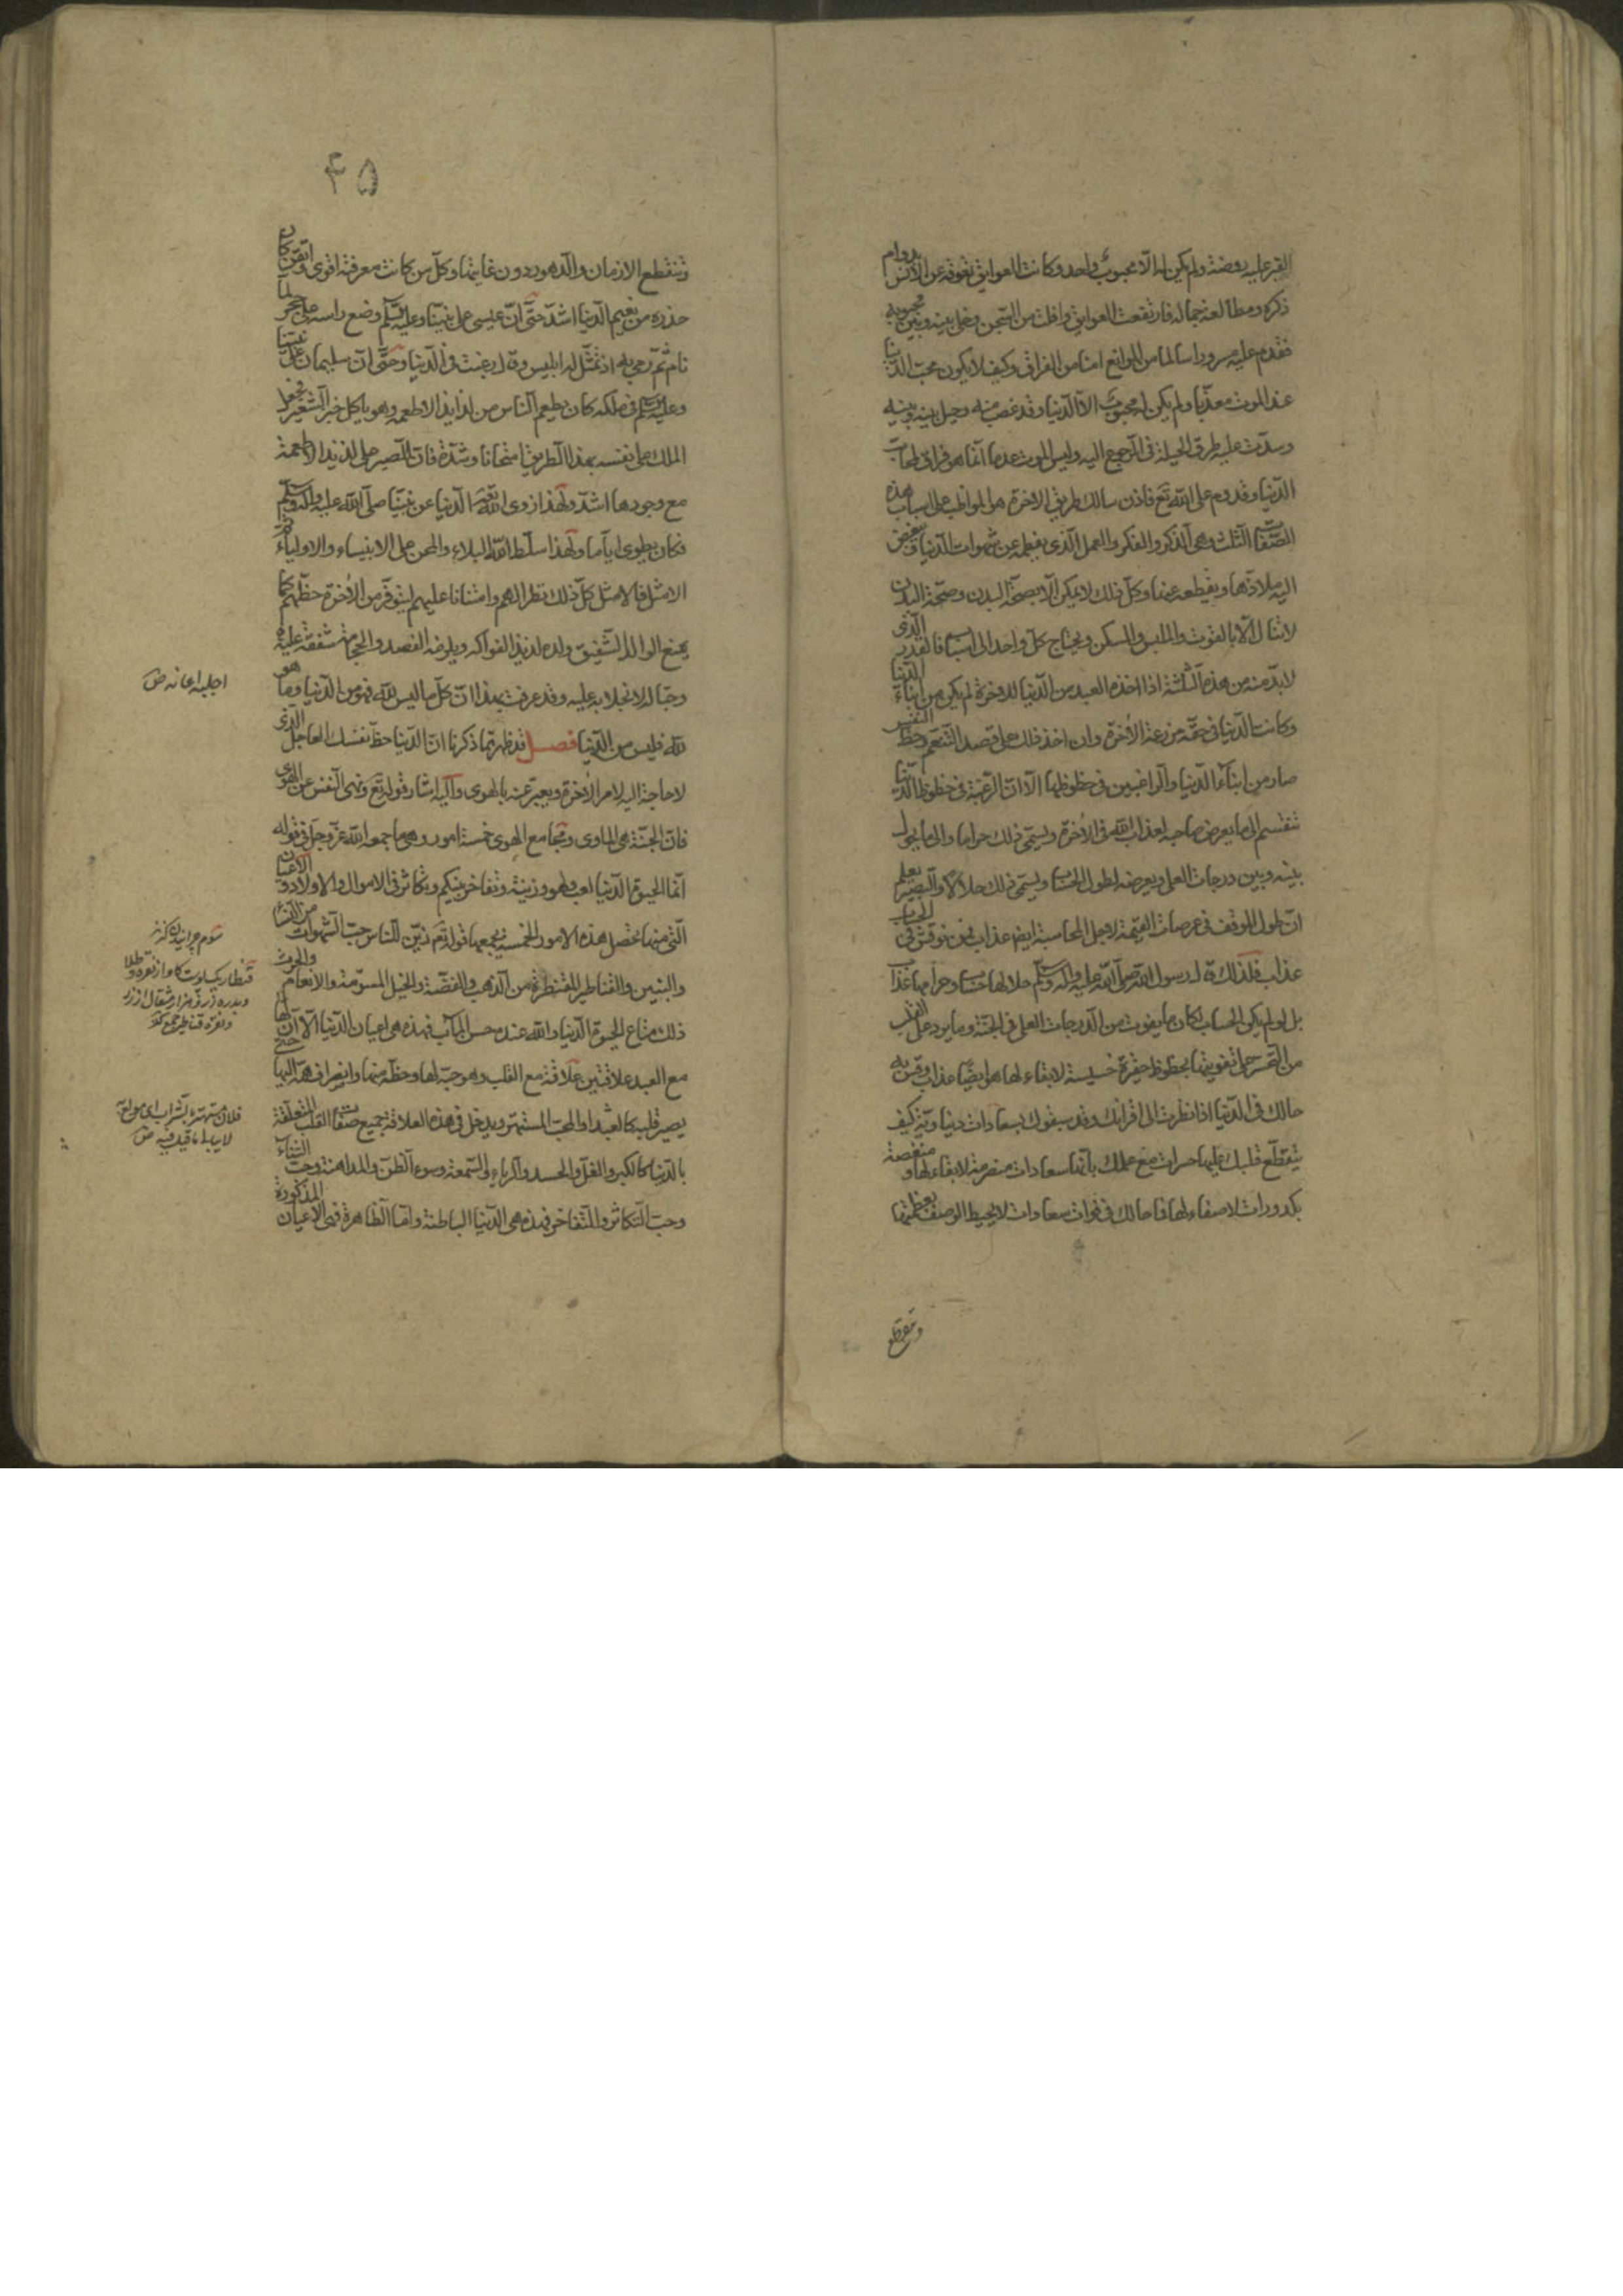 القبر عليه روضة ولم يكن له الا محبوب واحد وكانت العوايق تعوقه عن الانس بدوام
ذكره ومطالعة جماله فارتفعت العوايق وافلت من السّجن وخلى بينه وبين محبوبه
فقدم عليه مسرورا سالما من الموانع امنا من الفراق وكيف لا يكون محبّ الدّنيا
عند الموت معذّبا ولم يكن له محبوب الا الدّنيا وقد غصب منه وحيل بينه وبينه
وسدّت عليه طرق الحيلة فى الرّجوع اليه وليس الموت عدما انّما هو فراق لمحاب
الدّنيا وقدوم على الله تع فاذن سالك طريق الاخرة هو المواظب على اسباب هذه
الصّفات الثلث وهى الذكر والفكر والعمل الّذى يفطمه عن شهوات الدّنيا ويبغض
اليه ملاذّها ويقطعه عنها وكلّ ذلك لا يمكن الّا بصحّة البدن وصحّة البدن
لا تنال الّا بالقوت والملبس والمسكن ويحتاج كلّ واحد الى اسباب فالقدر الّذى
لا بدّ منه من هذه الثّلثة اذا اخذه العبد من الدّنيا للاخرة لم يكن من ابناء الدّنيا
وكانت الدّنيا فى حقّه مزرعة الاخرة وان اخذ ذلك على قصد التّنعّم وحظّ النفس
صار من ابناء الدّنيا والراغبين فى حظوظها الّا انّ الرّغبة فى حظوظ الدّنيا
تنقسم الى ما يعرض صاحبه لعذاب الله فى الاخرة ويسمّى ذلك حراما والى ما يحول
بينه وبين درجات العلى ويعرضه لطول الحساب ويسمّى ذلك حلالا والبصير يعلم
انّ طول الموقف فى عرصات القيٰمة لاجل المحاسبة ايضا عذاب فمن نوقش فى الحساب
عذّب فلذلك قال رسول الله صلّى الله عليه واله وسلّم حلالها حساب وحرامها عذاب
بل لو لم يكن الحساب لكان ما يفوت من الدّرجات العلى فى الجنّة وما يرد على القلب
من التّحسّر على تفويتها بحظوظ حقيرة خسيسة لا بقاء لها هو ايضا عذاب وقس به
حالك فى الدّنيا اذا نظرت الى اقرانك وقد سبقوك بسعادات دنياويّة كيف
يتقطّع قلبك عليها حسرات مع علمك بانّها سعادات منصرمة لا بقاء لها ومنغصة
بكدورات لا صفاء لها فما حالك فى فوات سعادات لا يحيط الوصف بعظمتها
وتنقطع
۴۵
وتنقطع الازمان والدّهور دون غايتها وكلّ من كانت معرفته اقوى واتقن كان
حذره من نعيم الدّنيا اشدّ حتّى انّ عيسى على نبيّنا وعليه السّلم وضع راسه على حجر لما
نام ثمّ رمى به اذ تمثّل له ابليس وقال رغبت فى الدّنيا وحتّى انّ سليمان على نبيّنا
وعليه السّلم فى ملكه كان يطعم النّاس من لذايذ الاطعمه وهو ياكل خبز الشّعير فجعل
الملك على نفسه بهذا الطّريق امتحانا وشدّة فانّ الصّبر على لذيذ الاطعمة
مع وجودها اشدّ ولهذا زوى الله تع الدّنيا عن نبيّنا صلّى الله عليه واله وسلّم
فكان يطوى ايّاما ولهذا سلّط الله البلاء والمحن على الانبياء والاولياء ثمّ
الامثل فالامثل كلّ ذلك نظرا لهم وامتنانا عليهم ليتوفّر من الاخرة حظّهم كما
يمنع الوالد الشّفيق ولده لذيذ الفواكه ويلزمه الفصد والحجامة شفقة عليه
وحبّا له لا بخلا به عليه وقد عرفت بهذا انّ كلّ ما ليس لله فهو من الدّنيا وما هو
لله فليس من الدّنيا فصل قد ظهر ممّا ذكرنا انّ الدّنيا حظّ نفسك العاجل الّذى
لا حاجة اليه لامر الاخرة ويعبّر عنه بالهوى واليه اشار قوله تع ونهى النّفس عن الهوى
فانّ الجنّة هى الماوى ومجامع الهوى خمسة امور وهى ما جمعه الله عزّ وجلّ فى قوله
انّما الحيوة الدّنيا لعب ولهو وزينة وتفاخر بينكم وتكاثر فى الاموال والاولاد والاعيان
الّتى منها تحصل هذه الامور الخمسة يجمعها قوله تع زيّن للنّاس حبّ الشّهوات من النّساء
والبنين والقناطير المقنطرة من الذّهب والفضّة والخيل المسوّمة والانعام والحرث
ذلك متاع الحيوة الدّنيا والله عنده حسن المآب فهذه هى اعيان الدّنيا الّا انّ لها
مع العبد علاقتين علاقة مع القلب وهو حبّه لها وحظّه منها وانصراف همّه اليها حتّى
يصير قلبه كالعبد او المحبّ المستهتر ويدخل فى هذه العلاقة جميع صفات القلب المتعلّقة
بالدّنيا كالكبر والغلّ والحسد والرّياء والسّمعة وسوء الظّنّ والمداهنة وحبّ الثّناء
وحبّ التّكاثر والتّفاخر فهذه هى الدّنيا الباطنة وامّا الظّاهرة فهى الاعيان المذكورة
اجلبه اعانه ص
سوم چرانيدن كنز
قنطار يكپوست كاو از نقره و طلا
وبدره زر و هزار مثقال از زر
و نقره قناطير جمع كنز
فلان مستهتر بالشراب اى مولع به
لا يبالى ما قيل فيه ص